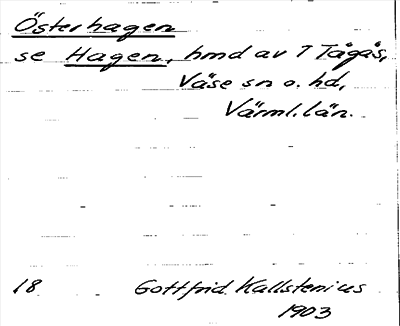 Österhagen
se Hagen, hmd av 1 Tågås,
Väse sn o. hd,
Värml. län.
18 Gottfrid Kallstenius
1903